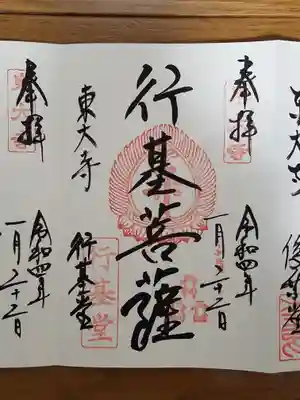 東大寺 俊乗堂
奉拝
令和四年
一月二十二日
行基菩薩
東大寺
行基堂
行基堂
奉拝
令和四年
一月二十二日